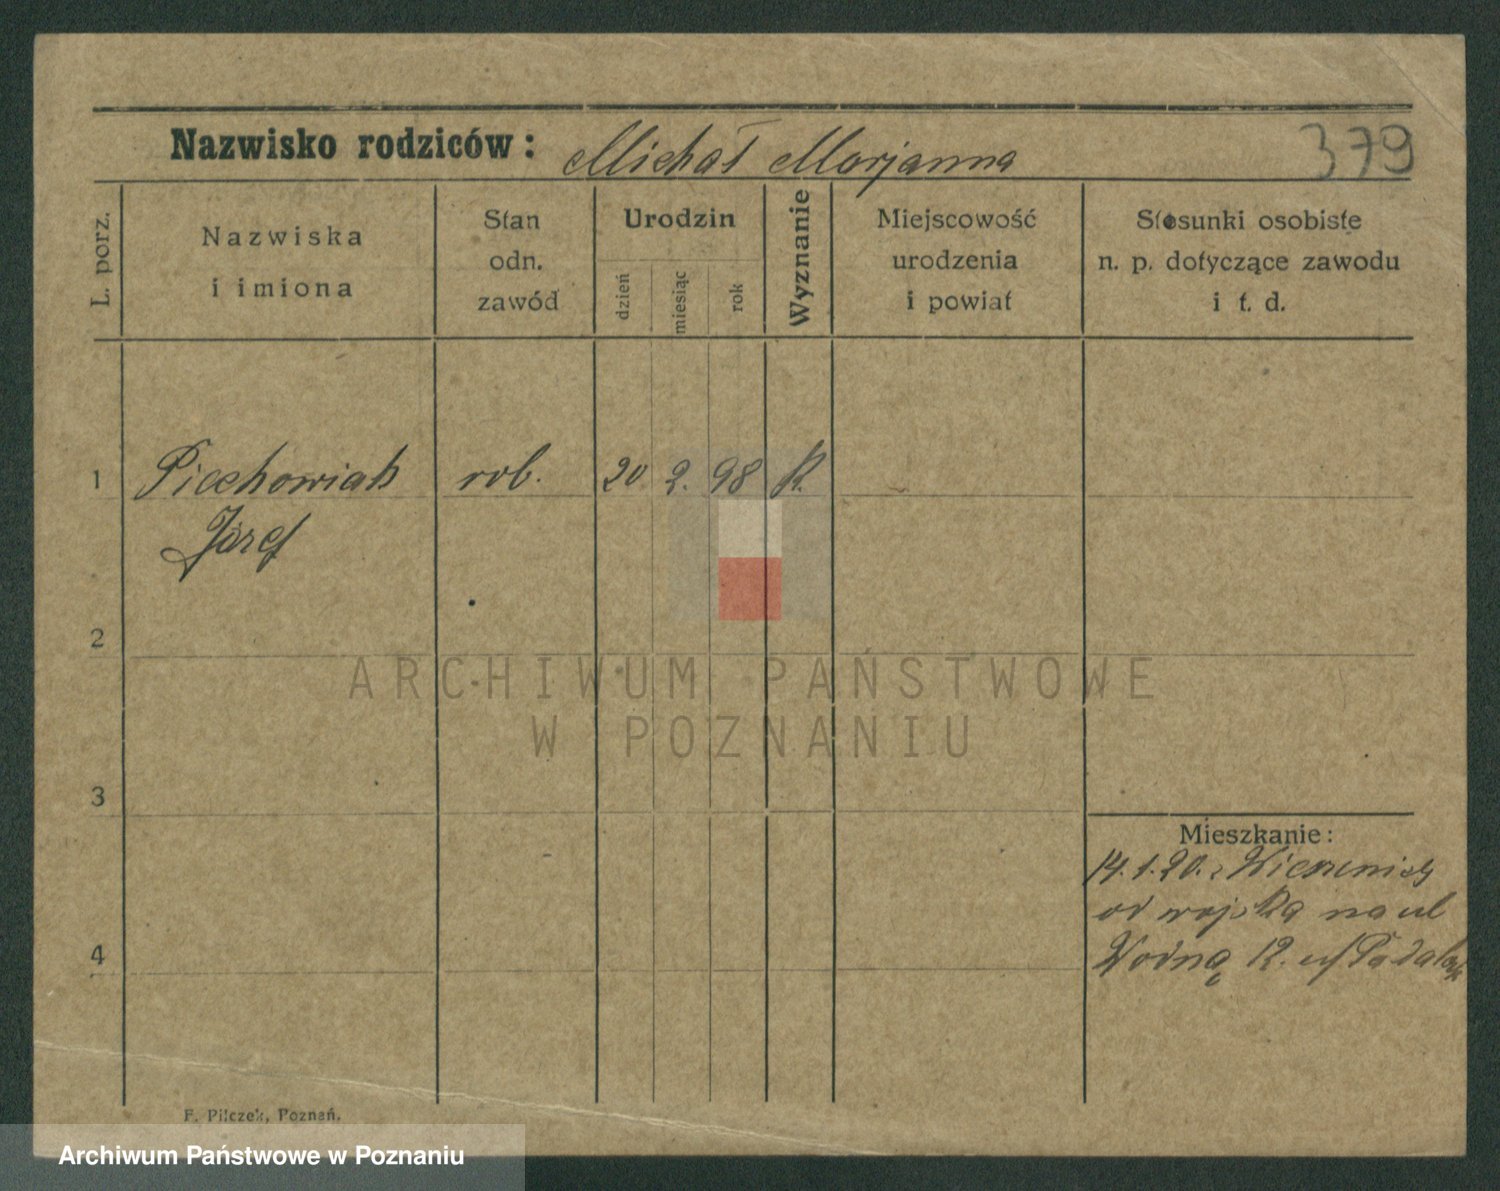 Nazwisko rodziców: Michał Marjanna 379
L. porz.
Nazwiska
i imiona
Stan
odn.
zawód
Urodzin
dzień
miesiąc
rok
Wyznanie
Miejscowość
urodzenia
i powiat
Stosunki osobiste
n. p. dotyczące zawodu
i t. d.
1 Piechowiak rob. 20 2. 98 K.
Józef
2
ARCHIWUM PAŃSTWOWE
W POZNANIU
3
Mieszkanie:
14.1.20. z
od wojska na ul
4
Wodną 12.
F. Pilczek, Poznań.
Archiwum Państwowe w Poznaniu